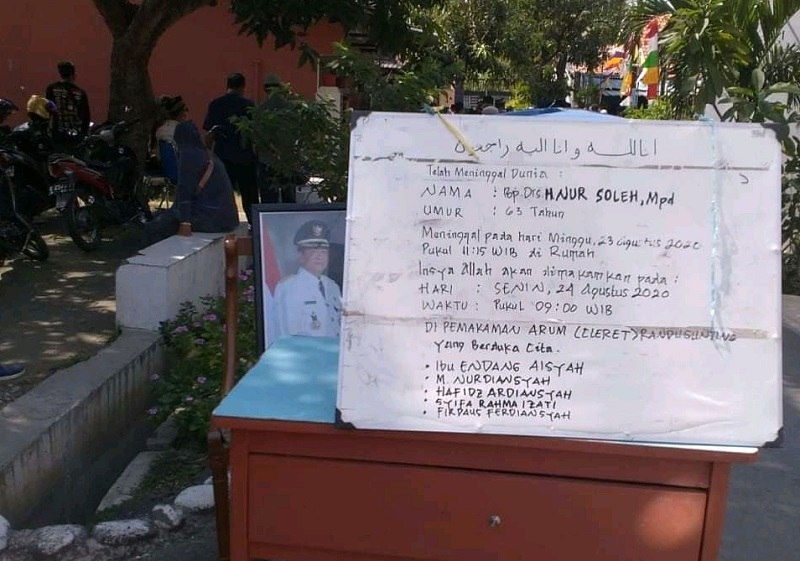 انا لله وانا اليه راجعون
Telah Meninggal Dunia :
NAMA : Bp. Drs. H.NUR SOLEH, Mpd
UMUR : 63 Tahun
Meninggal pada hari Minggu, 23 agustus 2020
Pukul 11:15 WIB di Rumah
Insya Allah akan dimakamkan pada :
HARI : SENIN, 24 Agustus 2020
WAKTU : Pukul 09:00 WIB
DI PEMAKAMAN ARUM (CLERET) RANDUGUNTING
Yang Berduka Cita.
• Ibu ENDANG AISYAH
• M. NURDIANSYAH
• HAFIDZ ARDIANSYAH
• SYIFA RAHMA IZATI
• FIRDAUS FERDIANSYAH